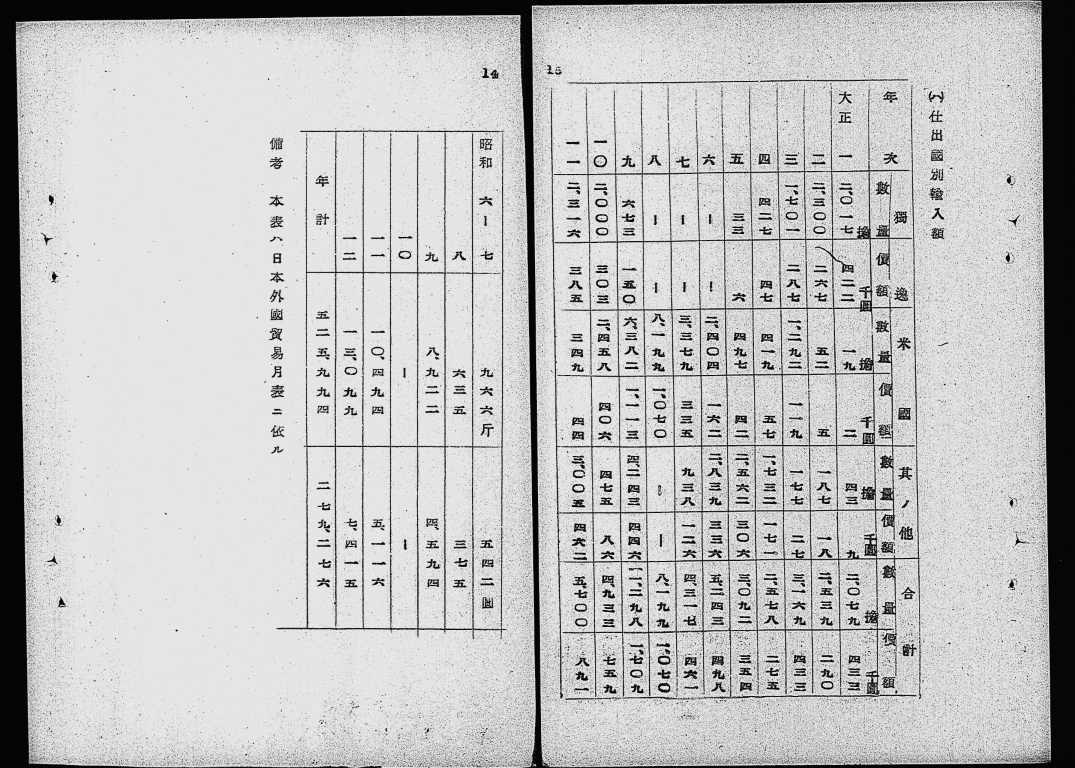 14
昭和 六ー七 九六六斤 五四二圓
八 六三五 三七五
九 八、九二二 四、五九四
一〇 ー ー
一一 一〇、四九四 五、一一六
一二 一三、〇九九 七、四一五
年計 五二五、九九四 二七九、二七六
備考 本表ハ日本外國貿易月表ニ依ル
15
仕出國別輸入額
獨逸 米國 其ノ他 合計
年次 數量 價額 數量 價額 數量 價額 數量 價額
大正 一 二、〇一七擔 四二二千圓 一九擔 二千圓 四三擔 九千圓 二、〇七九擔 四三三千圓
二 二、三〇〇 二六七 五二 五 一八七 一八 二、五三九 二九〇
三 一、七〇一 二八七 一、二九二 一一九 一七七 二七 三、一六九 四三三
四 四二七 四七 四一九 五七 一、七三二 一七一 二、五七八 二七五
五 三三 六 四九七 四二 二、五六二 三〇六 三、〇九二 三五四
六 ー ー 二、四〇四 一六二 二、八三九 三三六 五、二四三 四九八
七 ー ー 三、三七九 三三五 九三八 一二六 四、三一七 四六一
八 ー ー 八、一九九 一、〇七〇 ー ー 八、一九九 一、〇七〇
九 六七三 一五〇 六、三八二 一、一一三 四、二四三 四四六 一一、二九八 一、七〇九
一〇 二、〇〇〇 三〇三 二、四五八 四〇六 四七五 八六 四、九三三 七五九
一一 二、三一六 三八五 三四九 四四 三、〇〇五 四六二 五、七〇〇 八九一